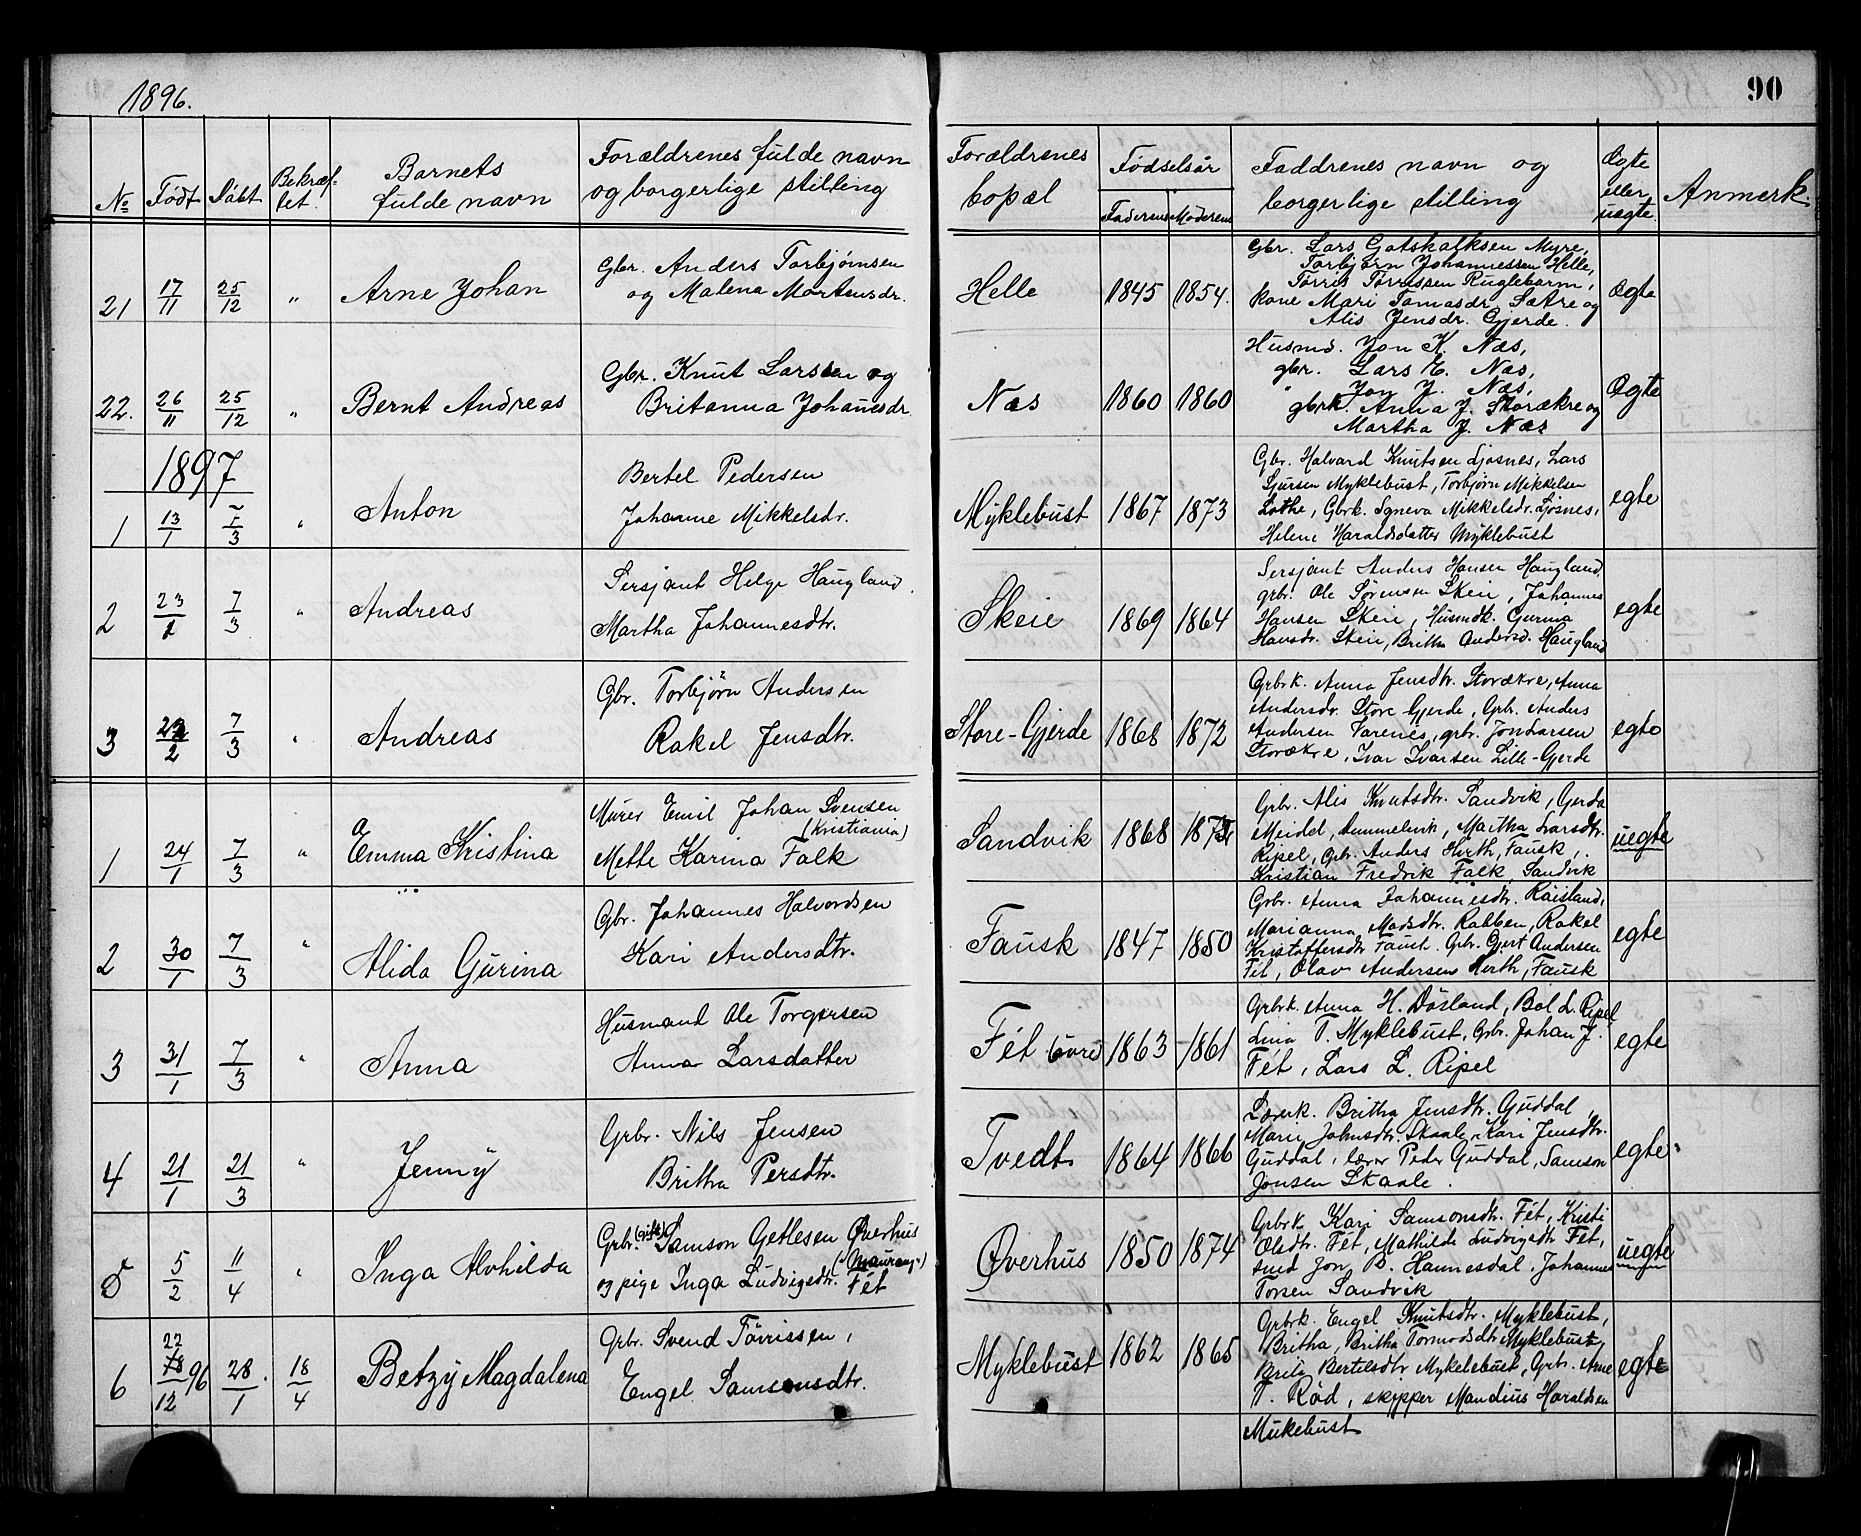 1896.
90
No Født Døbt Bekræf-tet. Barnets fulde navn Forældrenes fulde navn og borgerlige stilling Forældrenes bopæl Fødselsår Faderens Moderens Faddrenes navn og borgerlige stilling Ægte eller uægte. Anmerk.
21 17/11 25/12 " Arne Johan Gbr. Anders Torbjørnsen
og Malena Mortensdr. Helle 1845 1854. Gbr. Lars Gotskalksen Myre,
Torbjørn Johannessen Helle,
Tørris Tørrissen Ruglebarm,
kone Mari Tomasdr. Sætre og
Alis Jensdr. Gjerde. Ægte
22. 26/11 25/12 " Bernt Andreas Gbr. Knut Larssen og
Britanna Johanesdr. Næs 1860 1860 Husmd. Jon K. Næs,
gbr. Lars E. Næs,
" Jon J. Næs,
gbrk. Anna J. Storækre og
Martha J. Næs Ægte
1897
1 13/1 /3 " Anton Bertel Pedersen
Johanne Mikkelsdr. Myklebust 1867 1873 Gbr. Halvard Knutsen Ljosnes, Lars
Sjursen Myklebust, Torbjørn Mikkelsen
Lothe, Gbrk. Syneva Mikkelsdr. Ljosnes,
Helene Haraldsdatter Myklebust egte
2 23/2 7/3 " Andreas Sersjant Helge Haugland.
Martha Johannesdtr. Skeie 1869 1864 Sersjant Anders Hansen Haugland,
gbr. Ole Sørensen Skeie, Johannes
Hansen Skeie, Husmdk. Gurina
Hansdr. Skeie, Britha Andersd. Haugland egte
3 /2 7/3 " Andreas Gbr. Torbjørn Andersen
Rakel Jensdtr. Store-Gjerde 1868 1872 Grbrk. Anna Jensdtr. Storækre, Anna
Andersdr. Store Gjerde, Grb. Anders
Andersen Varenes, grbr. Jon Larsen
Storækre, Ivar Ivarsen Lille-Gjerde egte
1 24/1 7/3 " Emma Kristina Murer Emil Johan Svensen
(Kristiania)
Mette Karina Falk Sandvik 1868 Grbr. Alis Knutsdtr. Sandvik, Gerda
Meidel, Martha Larsdtr.
Ripel, Grbr. Anders Hirth, Fausk,
Kristian Fredrik Falk, Sandvik uegte
2 30/1 7/3 " Alida Gurina Gbr. Johannes Halvordsen
Kari Andersdtr. Fausk 1847 1850 Grbr. Anna Johannesdtr. Røisland,
Marianna Madsdtr. Rabben, Rakel
Kristoffersdtr. Fausk. Grbr. Gjert Andersen
Fet, Olav Andersen Hirth, Fausk egte
3 31/1 7/3 " Anna Husmand Ole Torgersen
Anna Larsdatter Fét (øvre) 1863 1861 Grbrk. Anna H. Døsland, Bol L. Ripel
Lina T. Myklebust, Grbr. Johan J.
Fét, Lars L. Ripel egte
4 21/1 21/3 " Jenny Grbr. Nils Jensen
Britha Persdtr. Tvedt 1864 1866 Lærerk. Britha Jensdtr. Guddal,
Marie Johnsdtr. Skaale, Kari Jensdtr.
Guddal, lærer Peder Guddal, Samson
Jonsen Skaale. egte
5 5/2 11/4 " Inga Alvhilda Grbr. (gift) Samson Getlesen Øverhus
(Mauranger)
og pige Inga Ludvigsdtr. Fét Øverhus 1850 1874 Grbrk. Kari Samsonsdtr. Fét, Kristi
Olsdtr. Fét, Mathilde Ludvigsdtr Fét,
smd Jon B. Hannesdal, Johannes
Torsen Sandvik uegte
6 22/12 96 28/1. 18/4 Betzy Magdalena Grbr. Svend Tørrissen,
Engel Samsonsdtr. Myklebust 1862 1865 Grbrk. Engel Knutsdtr. Myklebust,
Britha, Britha Tormodsdtr Myklebust,
Brita Bertelsdtr Myklebust, Grbr. Arne
T. Rød, skipper Mandius Haraldsen
Mukebust egte